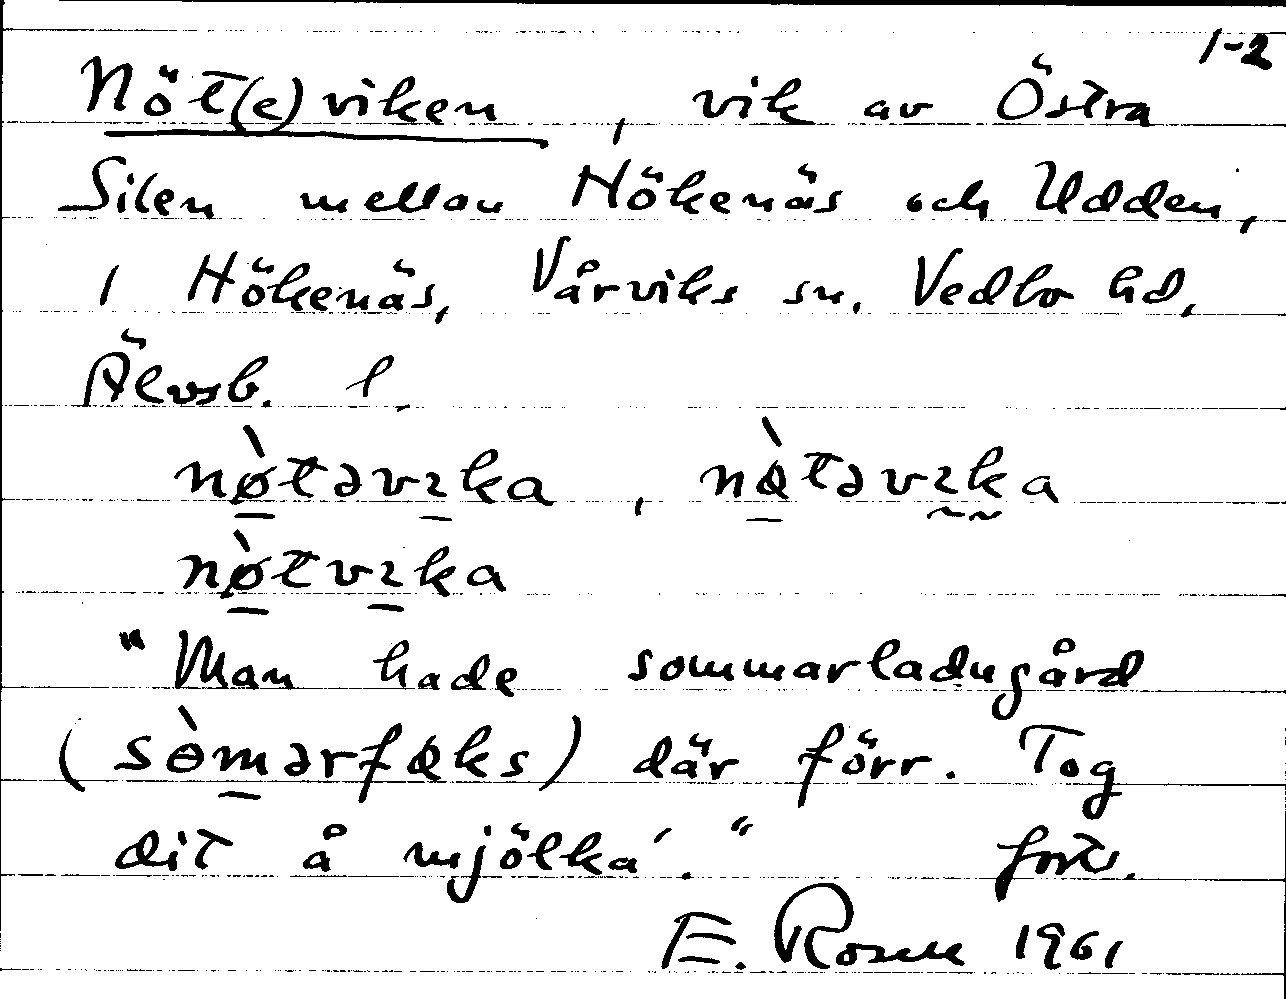 1-2
Nöt(e)viken, vik av Östra
Silen mellan Hökenäs och Udden,
i Hökenäs, Vårviks sn. Vedbo hd,
Älvsb. l.
nø̀təvıka, næ̀təvıka
nø̀tvıka
"Man hade sommarladugård
(sòmərfæks) där förr. Tog
dit å mjölka'." forts.
E. Rosell 1961